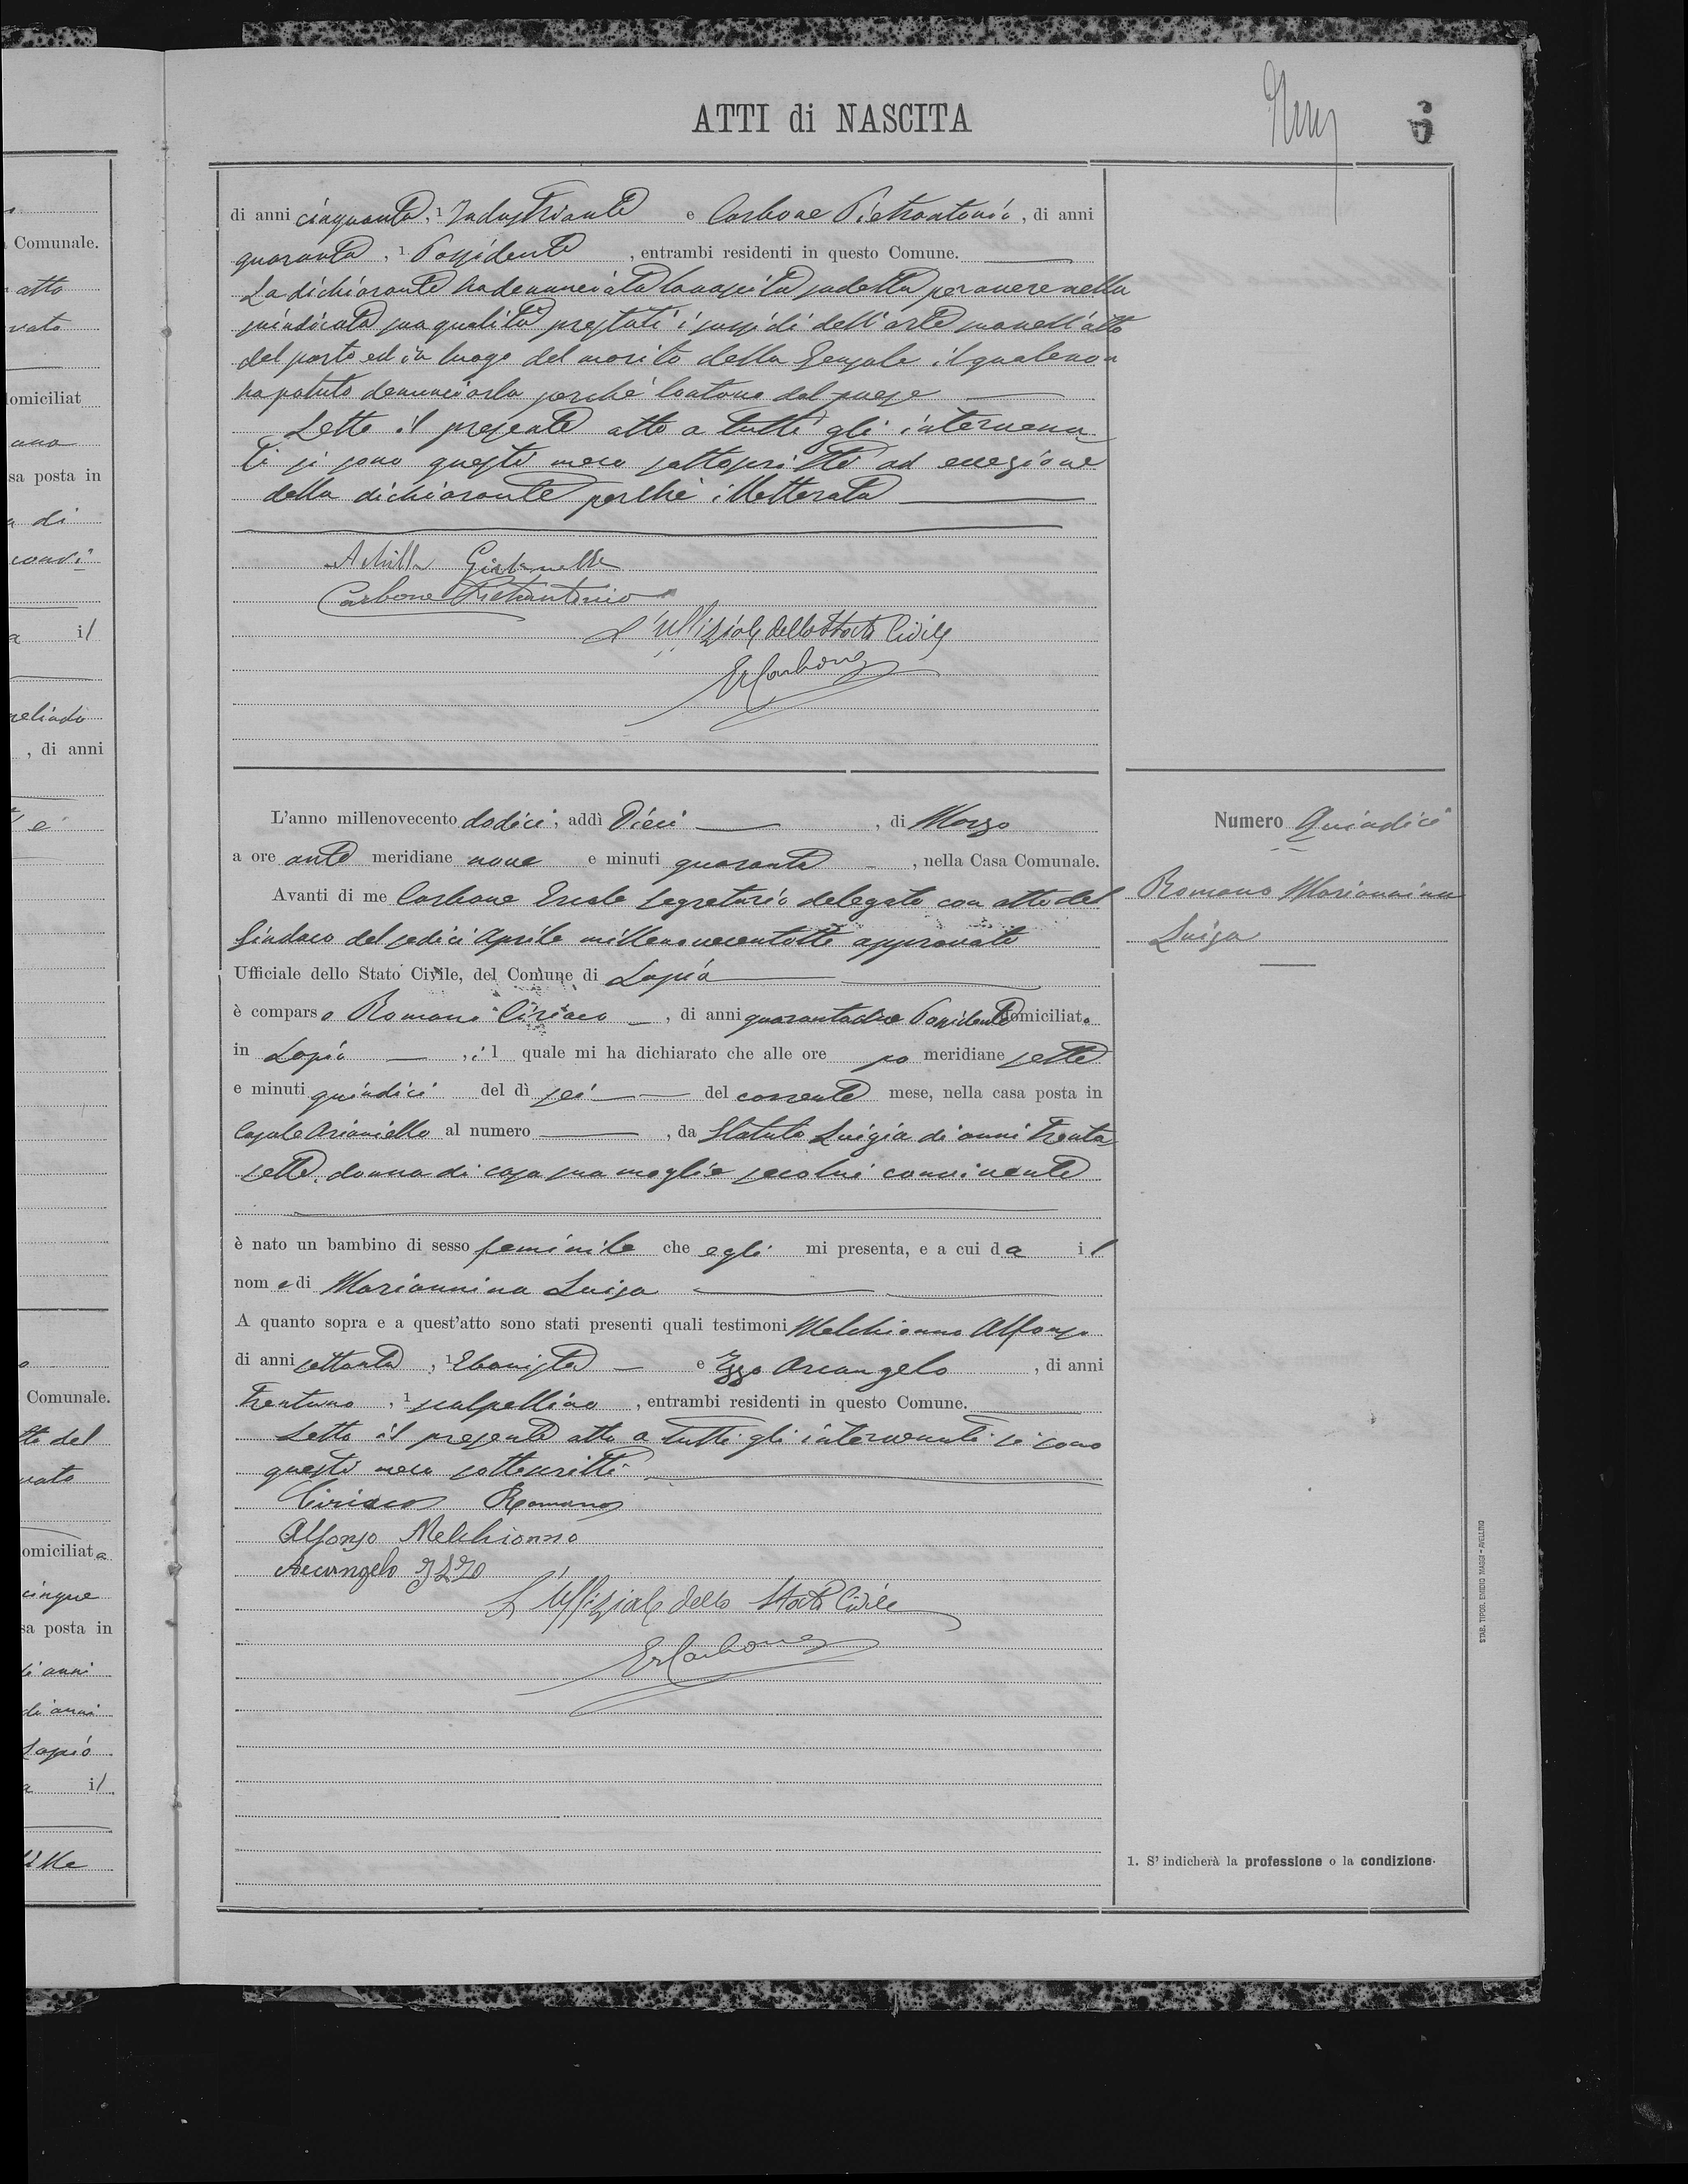 ATTI di NASCITA
6
di anni cinquanta, 1 Industriante e Carbone Pietrantonio, di anni
quaranta, 1 Possidente, entrambi residenti in questo Comune.
La dichiarante ha denunciata la nascita sudetta per avere nella
suindicata sua qualità prestati i sussidi dell'arte sua nell'atto
del parto ed in luogo del marito della Gengale il quale non
ha potuto denunciarla perchè lontano dal paese
Letto il presente atto a tutti gli intervenu
ti si sono questi meco sottoscritti ad eccezione
della dichiarante perchè illetterata
Achille
Carbone Pietrantonio
L'Uffiziale dello Stato Civile
ErCarbone
L'anno millenovecento dodici, addì Dieci, di Marzo
a ore ante meridiane nove e minuti quaranta, nella Casa Comunale.
Avanti di me Carbone Ercole Segretario delegato con atto del
Sindaco del sedici Aprile millenovecentotto approvato
Ufficiale dello Stato Civile, del Comune di Lapio
è comparso Romano Ciriaco, di anni quarantadue Possidente domiciliato
in Lapio, il quale mi ha dichiarato che alle ore po meridiane sette
e minuti quindici del dì sei del corrente mese, nella casa posta in
Casale Arianiello al numero, da Statuto Luigia di anni trenta
sette, donna di casa sua moglie secolui convivente
è nato un bambino di sesso feminile che egli mi presenta, e a cui da il
nome di Mariannina Luisa
A quanto sopra e a quest'atto sono stati presenti quali testimoni Melchionno Alfonso
di anni settanta, 1 Ebanista e Izzo Arcangelo, di anni
trentuno, 1 scalpellino, entrambi residenti in questo Comune.
Letto il presente atto a tutti gli intervenuti si sono
questi meco sottoscritti
Ciriaco Romano
Alfonso Melchionno
Arcangelo Izzo
L'Uffiziale dello Stato Civile
ErCarbone
Numero Quindici
Romano Mariannina
Luisa
1. S'indicherà la professione o la condizione.
STAB. TIPOG. EMIDIO MAGGI - AVELLINO
Comunale.
atto
vato
domiciliat
ano
sa posta in
a di
condi
a il
, di anni
Comunale.
tto del
vato
omiciliata
cinque
sa posta in
di anni
di anni
Lapio
a il